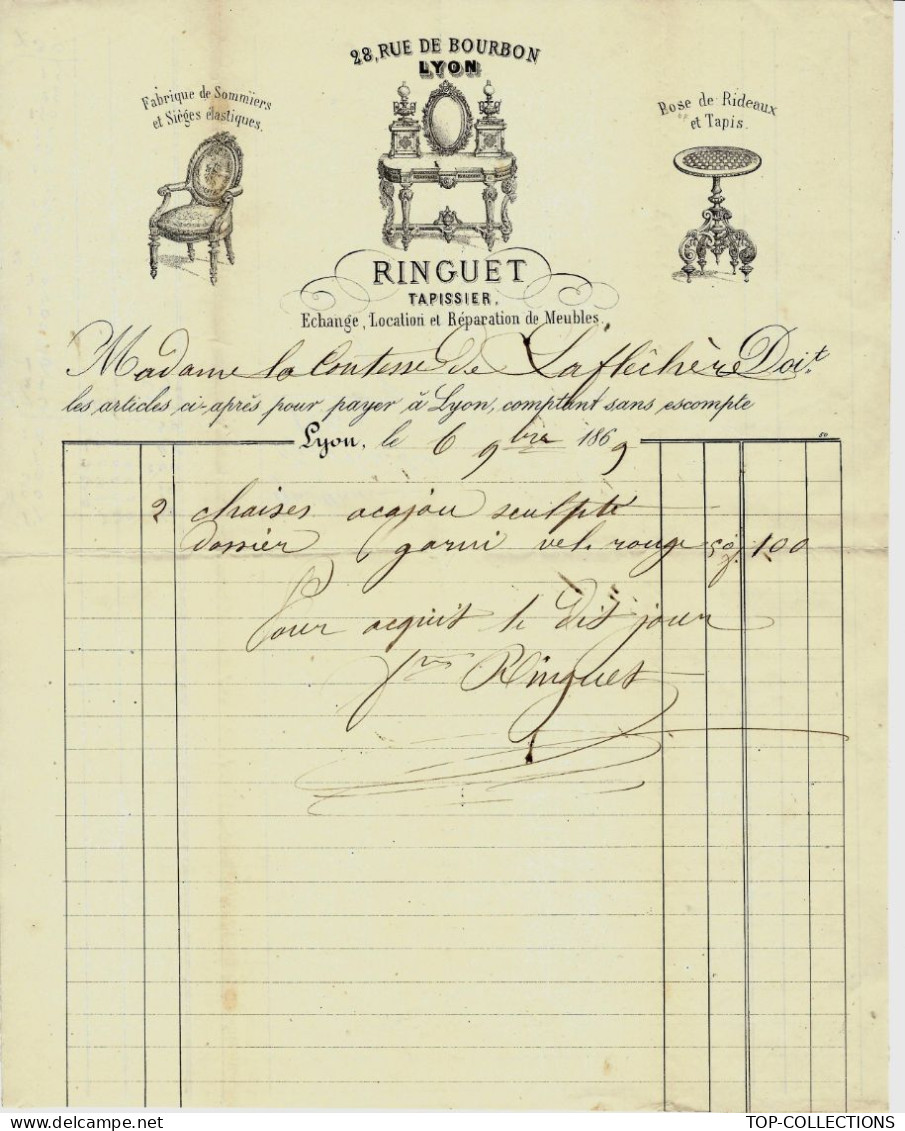 28, RUE DE BOURBON
LYON
Fabrique de Sommiers
et Sièges élastiques.
Pose de Rideaux
et Tapis.
RINGUET
TAPISSIER.
Echange, Location et Réparation de Meubles.
Madame la Contesse de Laflêchère Doit
les articles ci-après pour payer à Lyon, comptant sans escompte
Lyon, le 6 9bre 1869
2 chaises acajou sculpté
dossier garni vel. rouge 50f. 100
Pour acquit le dit jour
Ringuet
TOP-COLLECTIONS